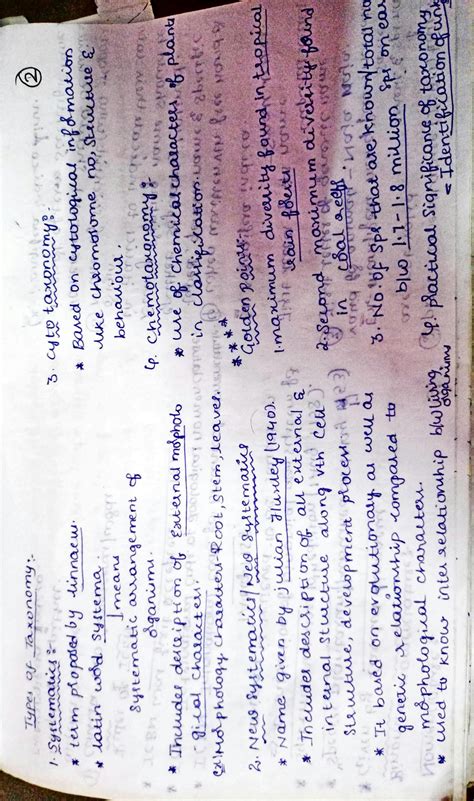 ②
Types of Taxonomy:-
1. Systematics:
* term proposed by linnaeus
* latin word Systema
means
Systematic arrangement of
organisms.
* Includes description of External morpholo
gical characters.
ex: Morphology characters-Root, Stem, leaves.
2. New Systematics/Neo Systematics
* Name given by Julian Huxley (1940).
* Includes description of all external &
internal structure along with Cell
structure, development process
* It based on evolutionary as well as
genetic relationship compared to
morphological characters.
* used to know inter relationship b/w living
organisms
3. Cyto taxonomy:-
* Based on cytological information
like chromosome no, structure &
behaviour.
4. Chemotaxonomy:-
* use of Chemical characters of plants
in classification.
***
Golden points
1 maximum diversity found in tropical
rain forests
2. Second maximum diversity found
in coral reefs.
3. No: of sps that are known/total no
b/w 1.7-1.8 million sps on ear
4. practical Significance of taxonomy
= Identification of